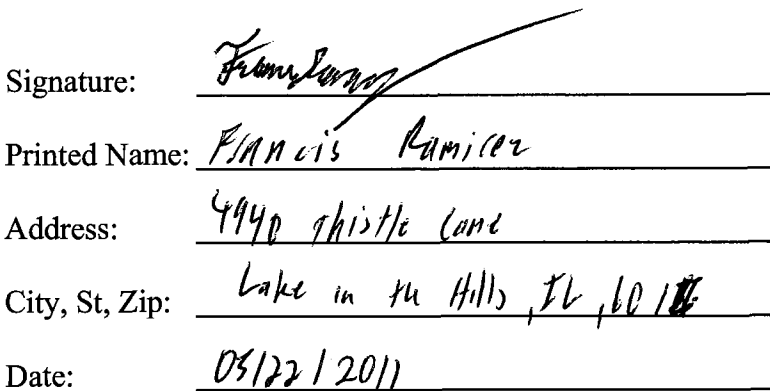 Signature:
Printed Name: Francis Ramirez
Address: 4940 Thistle Lane
City, St, Zip: Lake in the Hills, IL,
Date: 05/22/2011